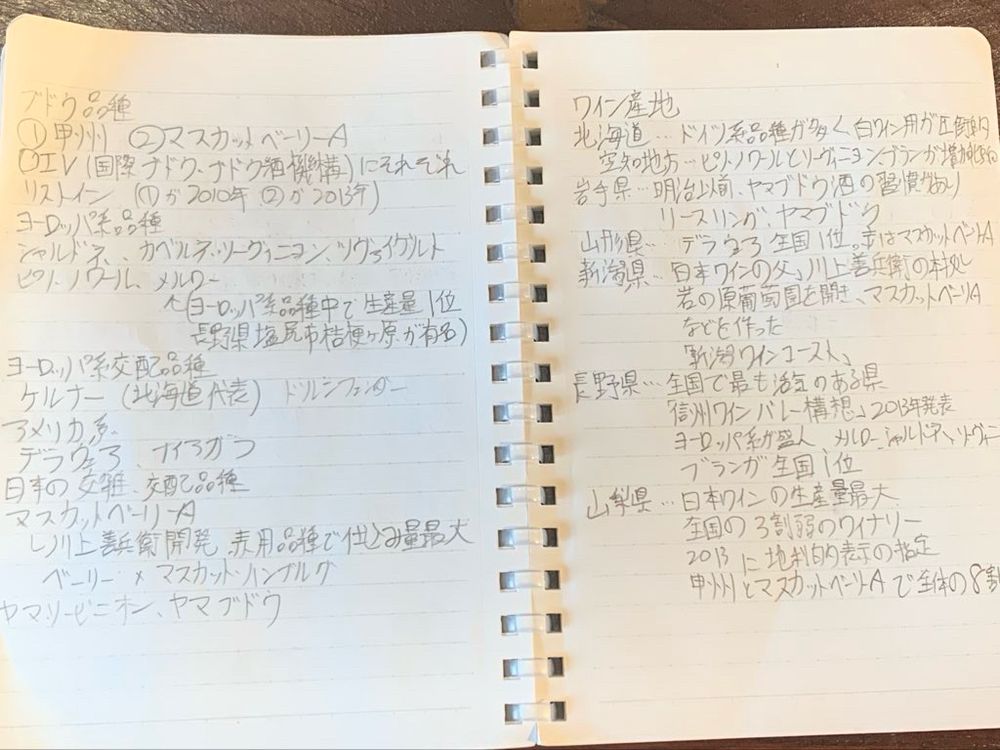 ブドウ品種
①甲州 ②マスカットベーリーA
OIV(国際ブドウ、ブドウ酒機構)にそれぞれ
リストイン (①が2010年 ②が2013年)
ヨーロッパ系品種
シャルドネ、カベルネ・ソーヴィニヨン、ツヴァイゲルト
ピノ・ノワール、メルロー
↑(ヨーロッパ系品種中で生産量1位
長野県塩尻市桔梗ヶ原が有名)
ヨーロッパ系交配品種
ケルナー (北海道代表) ドルンフェルダー
アメリカ系
デラウェア、ナイアガラ
日本の交雑、交配品種
マスカットベーリーA
↳川上善兵衛開発 赤用品種で仕込み量最大
ベーリー × マスカット・ハンブルグ
ヤマ・ソービニオン、ヤマブドウ
ワイン産地
北海道…ドイツ系品種が多く、白ワイン用が圧倒的
空知地方…ピノ・ノワールとソーヴィニヨン・ブランが
岩手県…明治以前、ヤマブドウ酒の習慣があり
リースリング、ヤマブドウ
山形県…デラウェア全国1位。赤はマスカットベーリーA
新潟県…日本ワインの父、川上善兵衛の本拠
岩の原葡萄園を開き、マスカットベーリーA
などを作った
「新潟ワインコースト」
長野県…全国で最も活気のある県
「信州ワインバレー構想」2013年発表
ヨーロッパ系が盛ん メルロー、シャルドネ、ソーヴィニ
ブランが全国1位
山梨県…日本ワインの生産量最大
全国の3割弱のワイナリー
2013に地理的表示の指定
甲州とマスカットベーリーAで全体の8割